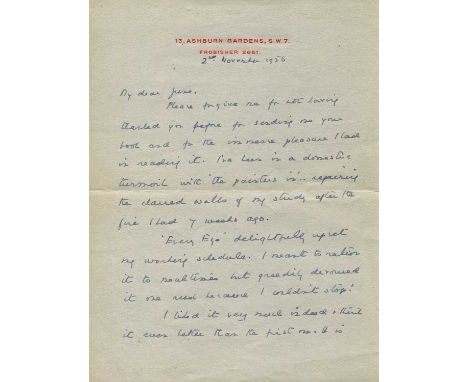 13, ASHBURN GARDENS, S.W.7.
FROBISHER 2661.
2nd November 1956
My dear
Please forgive me for not having
thanked you before for sending me your
book and for the immense pleasure I had
in reading it. I've been in a domestic
turmoil with the painters in.. repairing
the charred walls of my study after the
fire I had 7 weeks ago.
"Every Ego" delightfully upset
my working schedule. I meant to ration
it to mealtimes but greedily devoured
it one week because I couldn't stop!
I liked it very much indeed & think
it even better than the first one. It is